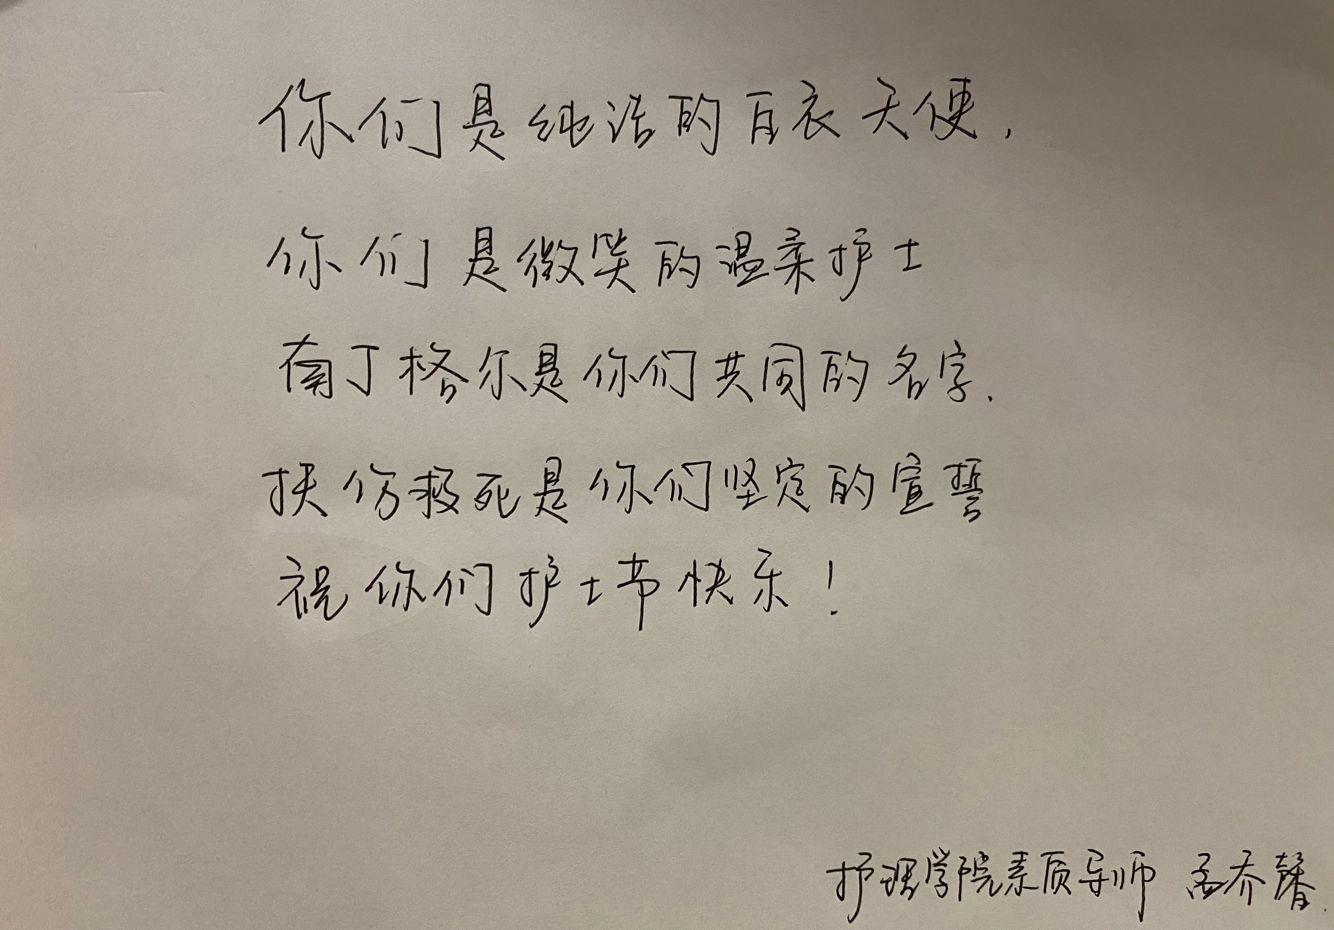 你们是纯洁的白衣天使,
你们是微笑的温柔护士
南丁格尔是你们共同的名字、
扶伤救死是你们坚定的宣誓
祝你们护士节快乐!
护理学院素质导师 孟乔馨